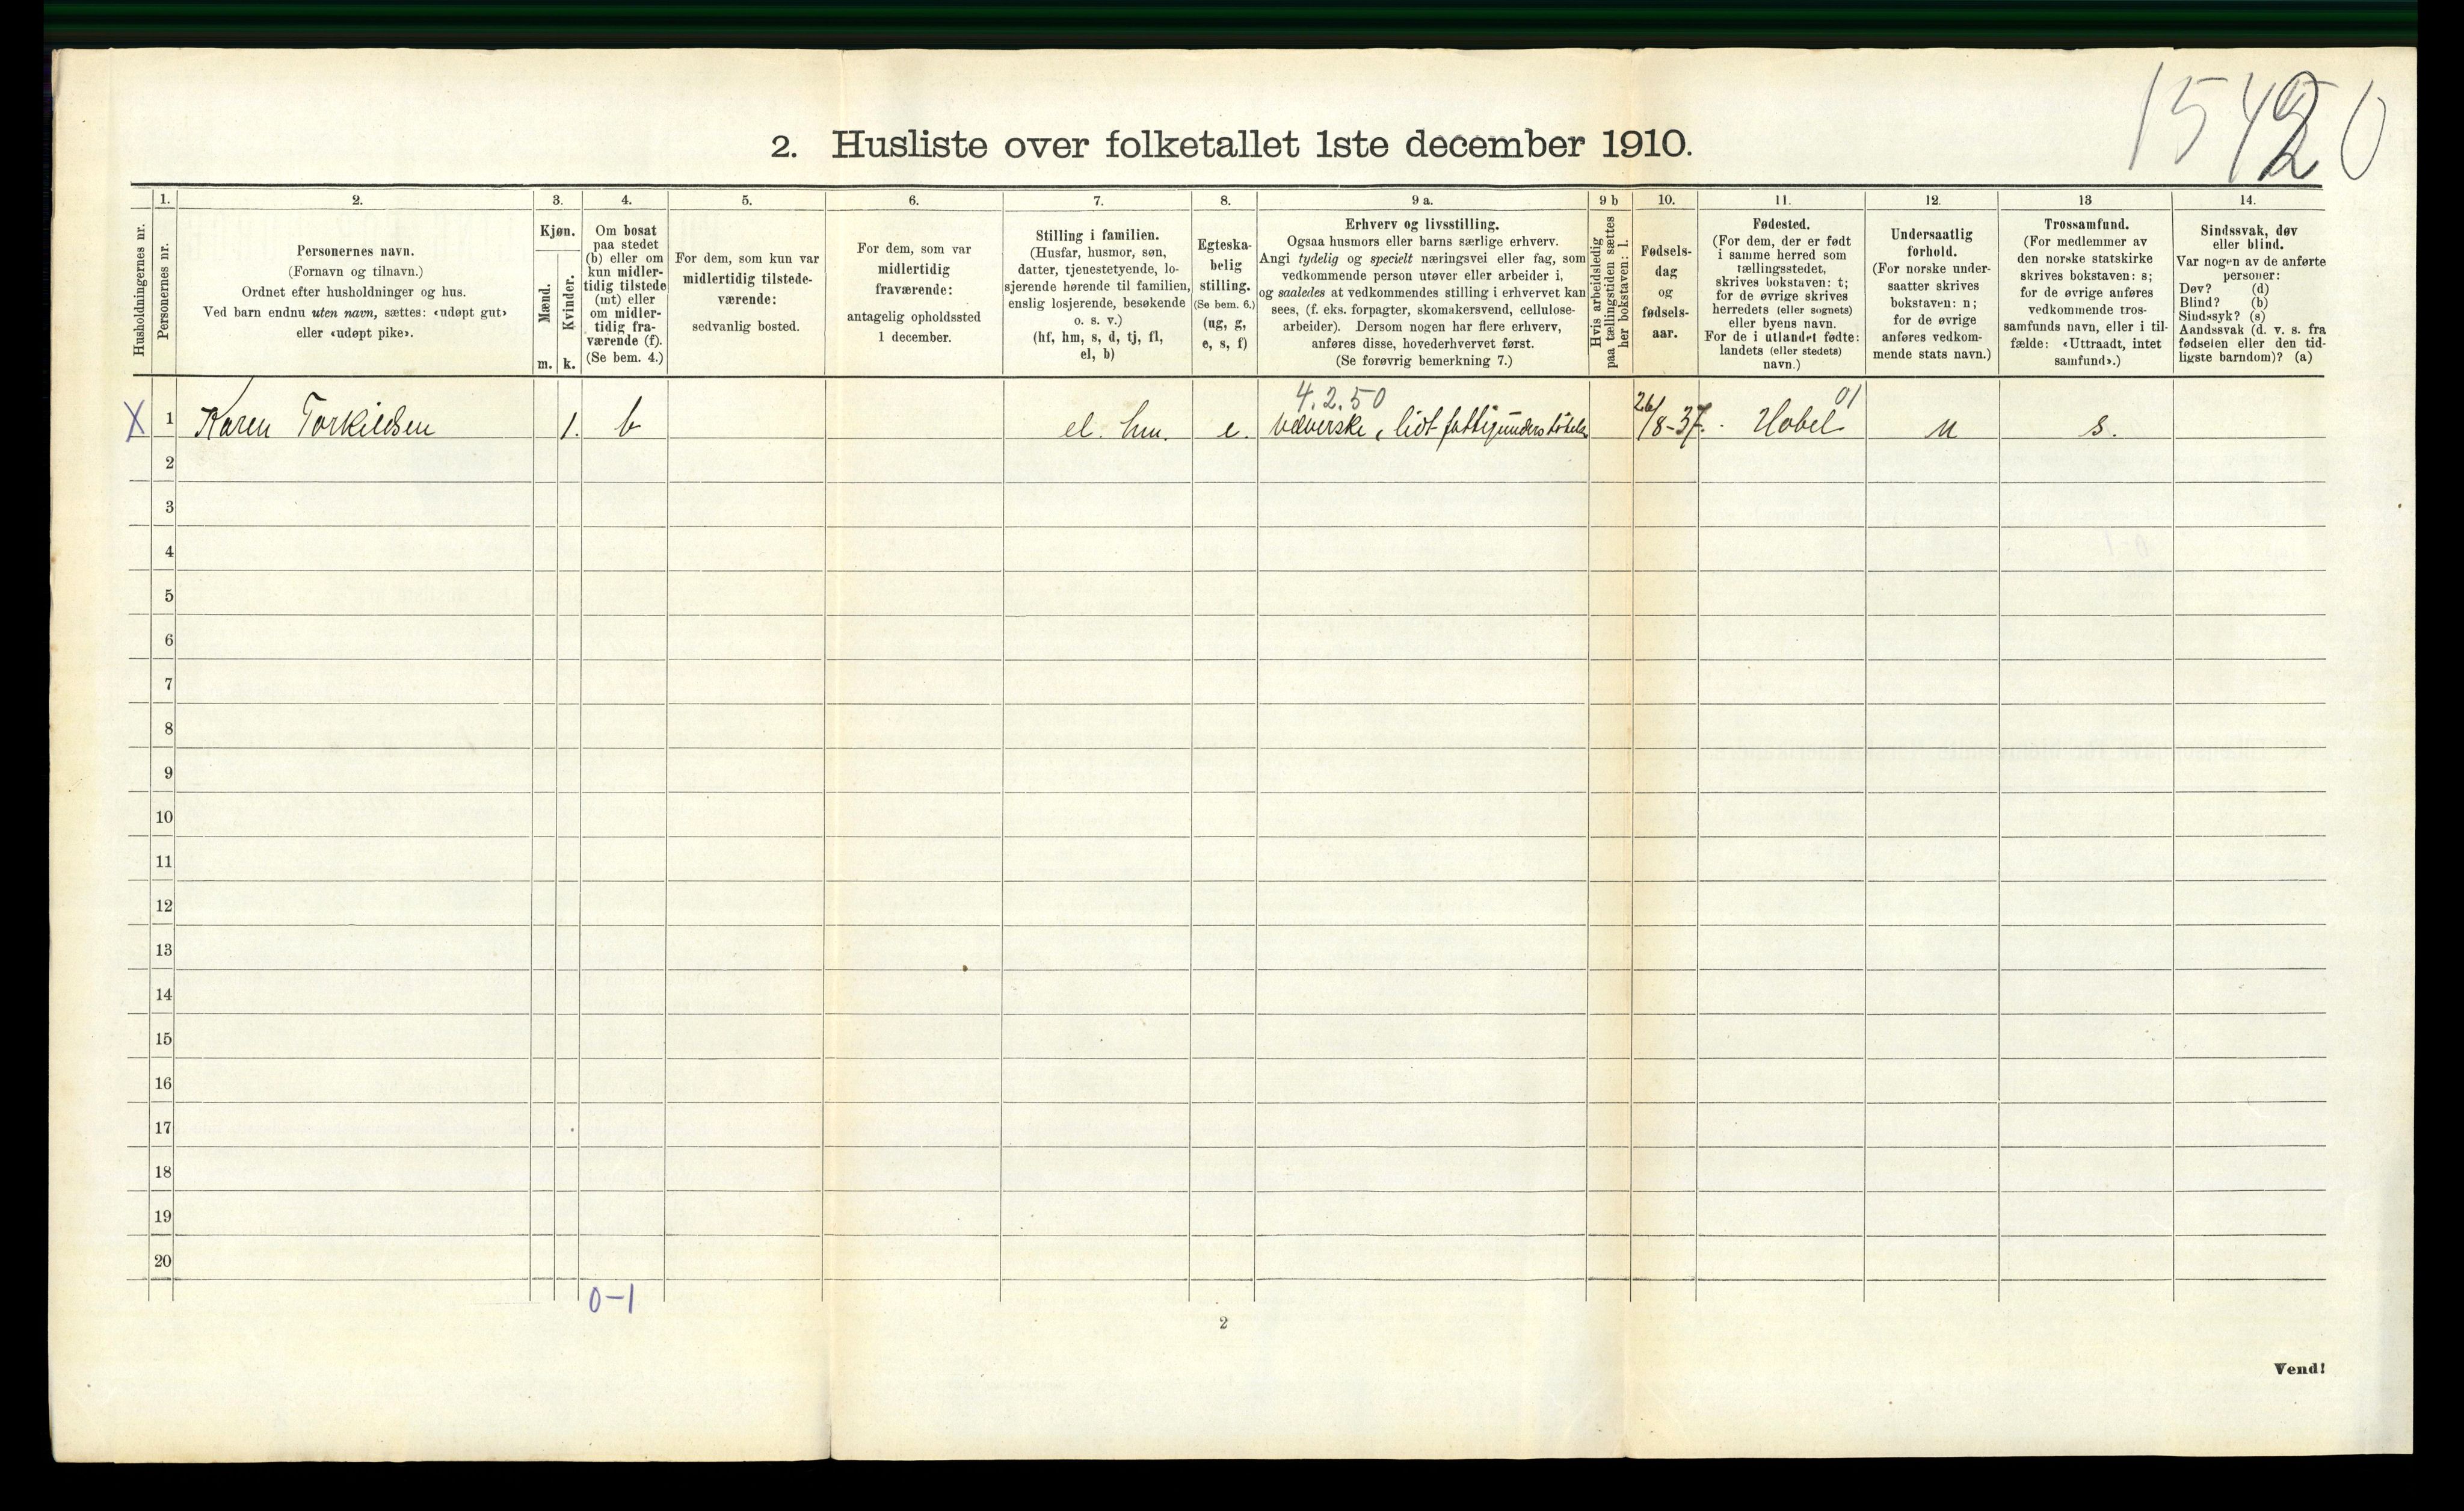 15420
2. Husliste over folketallet 1ste december 1910.
Husholdningernes nr.
1.
Personernes nr.
2.
Personernes navn.
(Fornavn og tilnavn.)
Ordnet efter husholdninger og hus.
Ved barn endnu uten navn, sættes: «udøpt gut»
eller «udøpt pike».
3.
Kjøn.
Mænd.
Kvinder.
m. k.
4.
Om bosat
paa stedet
(b) eller om
kun midler-
tidig tilstede
(mt) eller
om midler-
tidig fra-
værende (f).
(Se bem. 4.)
5.
For dem, som kun var
midlertidig tilstede-
værende:
sedvanlig bosted.
6.
For dem, som var
midlertidig
fraværende:
antagelig opholdssted
1 december.
7.
Stilling i familien.
(Husfar, husmor, søn,
datter, tjenestetyende, lo-
sjerende hørende til familien,
enslig losjerende, besøkende
o. s. v.)
(hf, hm, s, d, tj, fl,
el, b)
8.
Egteska-
belig
stilling.
(Se bem. 6.)
(ug, g,
e, s, f)
9 a.
Erhverv og livsstilling.
Ogsaa husmors eller barns særlige erhverv.
Angi tydelig og specielt næringsvei eller fag, som
vedkommende person utøver eller arbeider i,
og saaledes at vedkommendes stilling i erhvervet kan
sees, (f. eks. forpagter, skomakersvend, cellulose-
arbeider). Dersom nogen har flere erhverv,
anføres disse, hovederhvervet først.
(Se forøvrig bemerkning 7.)
9 b
Hvis arbeidsledig
paa tællingstiden sættes
her bokstaven: l.
10.
Fødsels-
dag
og
fødsels-
aar.
11.
Fødested.
(For dem, der er født
i samme herred som
tællingsstedet,
skrives bokstaven: t;
for de øvrige skrives
herredets (eller sognets)
eller byens navn.
For de i utlandet fødte:
landets (eller stedets)
navn.)
12.
Undersaatlig
forhold.
(For norske under-
saatter skrives
bokstaven: n;
for de øvrige
anføres vedkom-
mende stats navn.)
13
Trossamfund.
(For medlemmer av
den norske statskirke
skrives bokstaven: s;
for de øvrige anføres
vedkommende tros-
samfunds navn, eller i til-
fælde: «Uttraadt, intet
samfund».)
14.
Sindssvak, døv
eller blind.
Var nogen av de anførte
personer:
Døv? (d)
Blind? (b)
Sindssyk? (s)
Aandssvak (d. v. s. fra
fødselen eller den tid-
ligste barndom)? (a)
4.2.50 01
X 1 Karen Torkildsen 1. b el. hm. e. Væverske, lidt fattigunderstøttelse 26/8-37. Hobøl n s.
2
3
4
5
6
7
8
9
10
11
12
13
14
15
16
17
18
19
20
0-1
2
Vend!